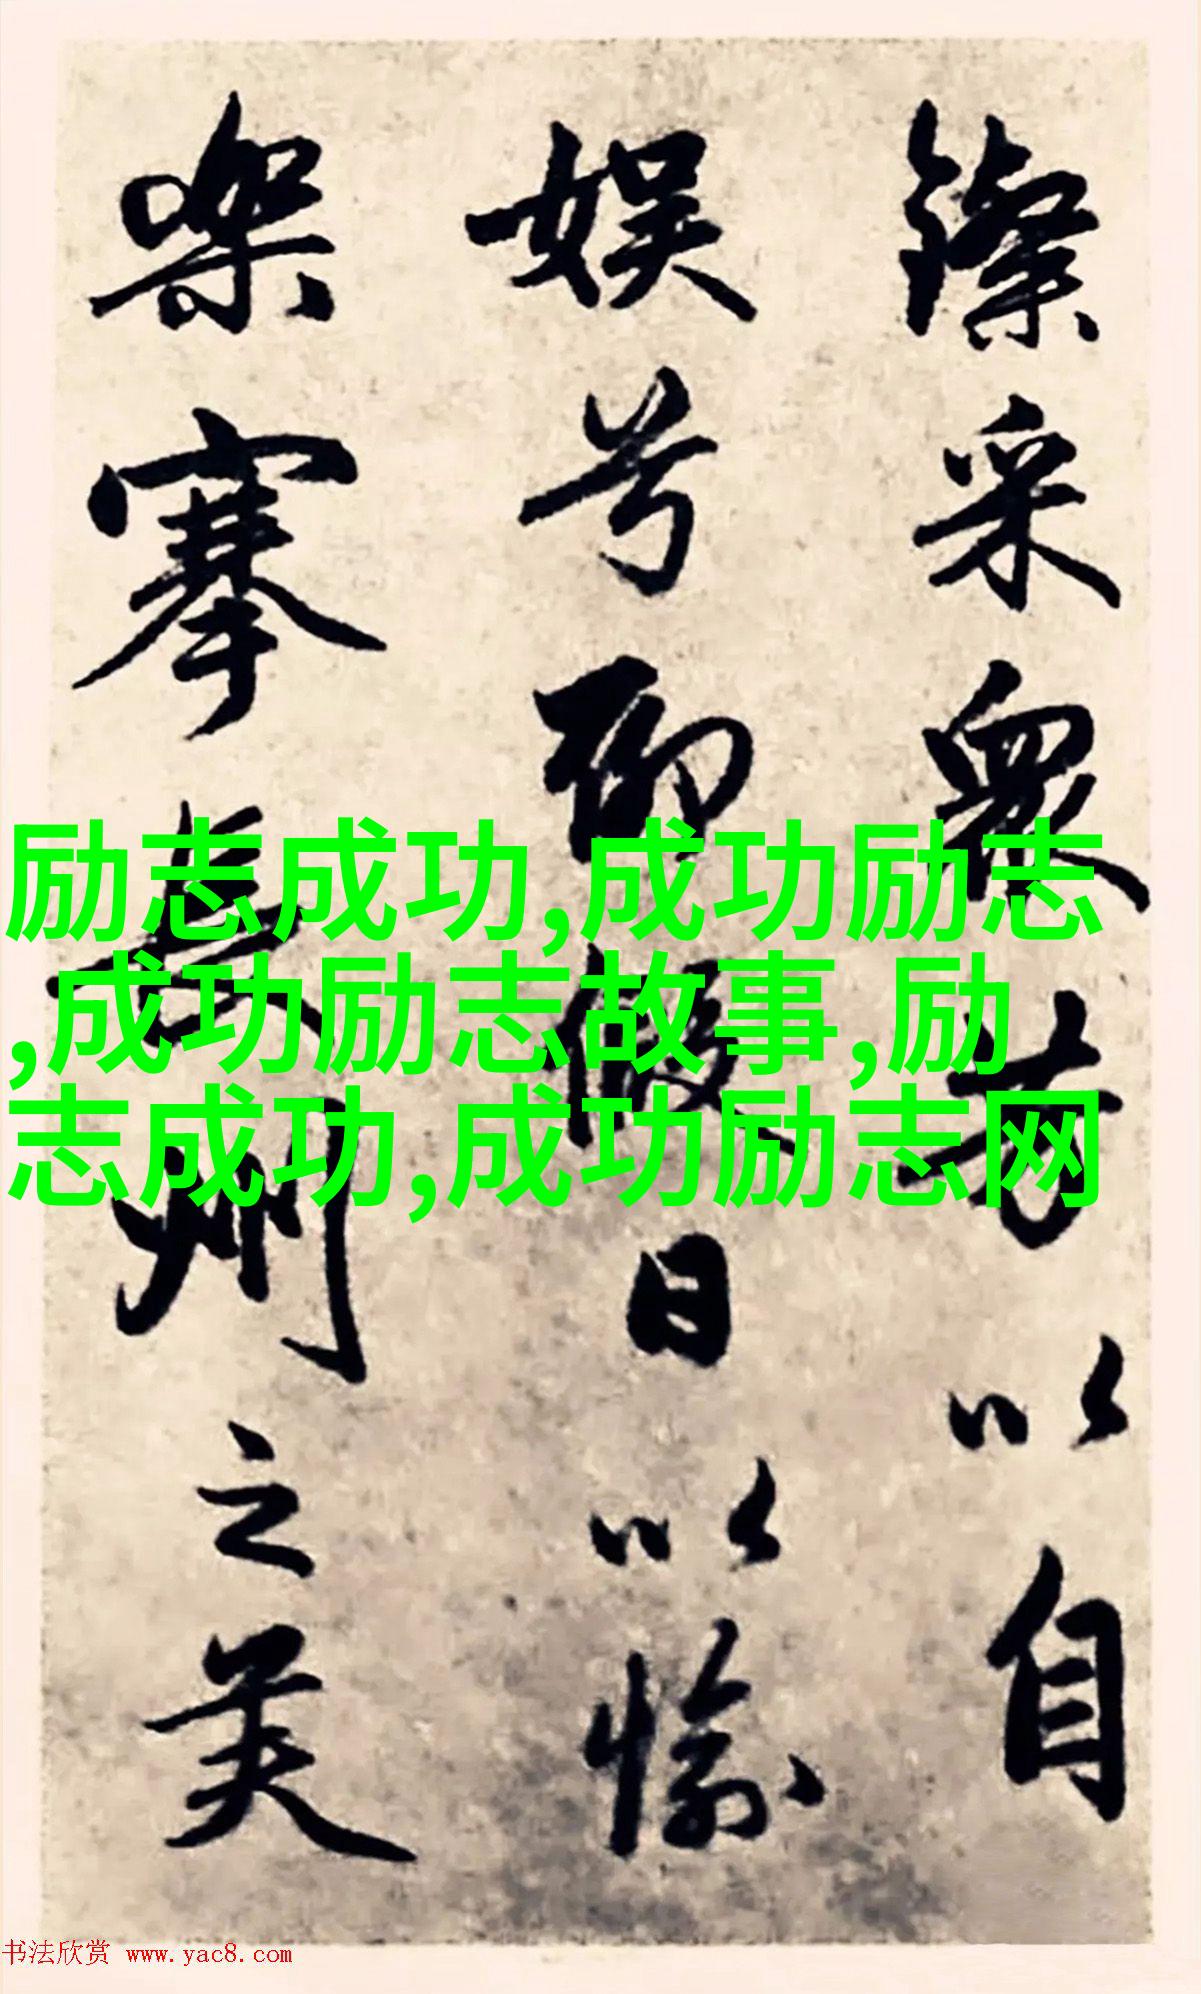 餐采衆芳以自
娱兮聊假日以愉
樂搴長洲之芙
励志成功,成功励志
,成功励志故事,励
志成功,成功励志网
书法欣赏 www.yac8.com